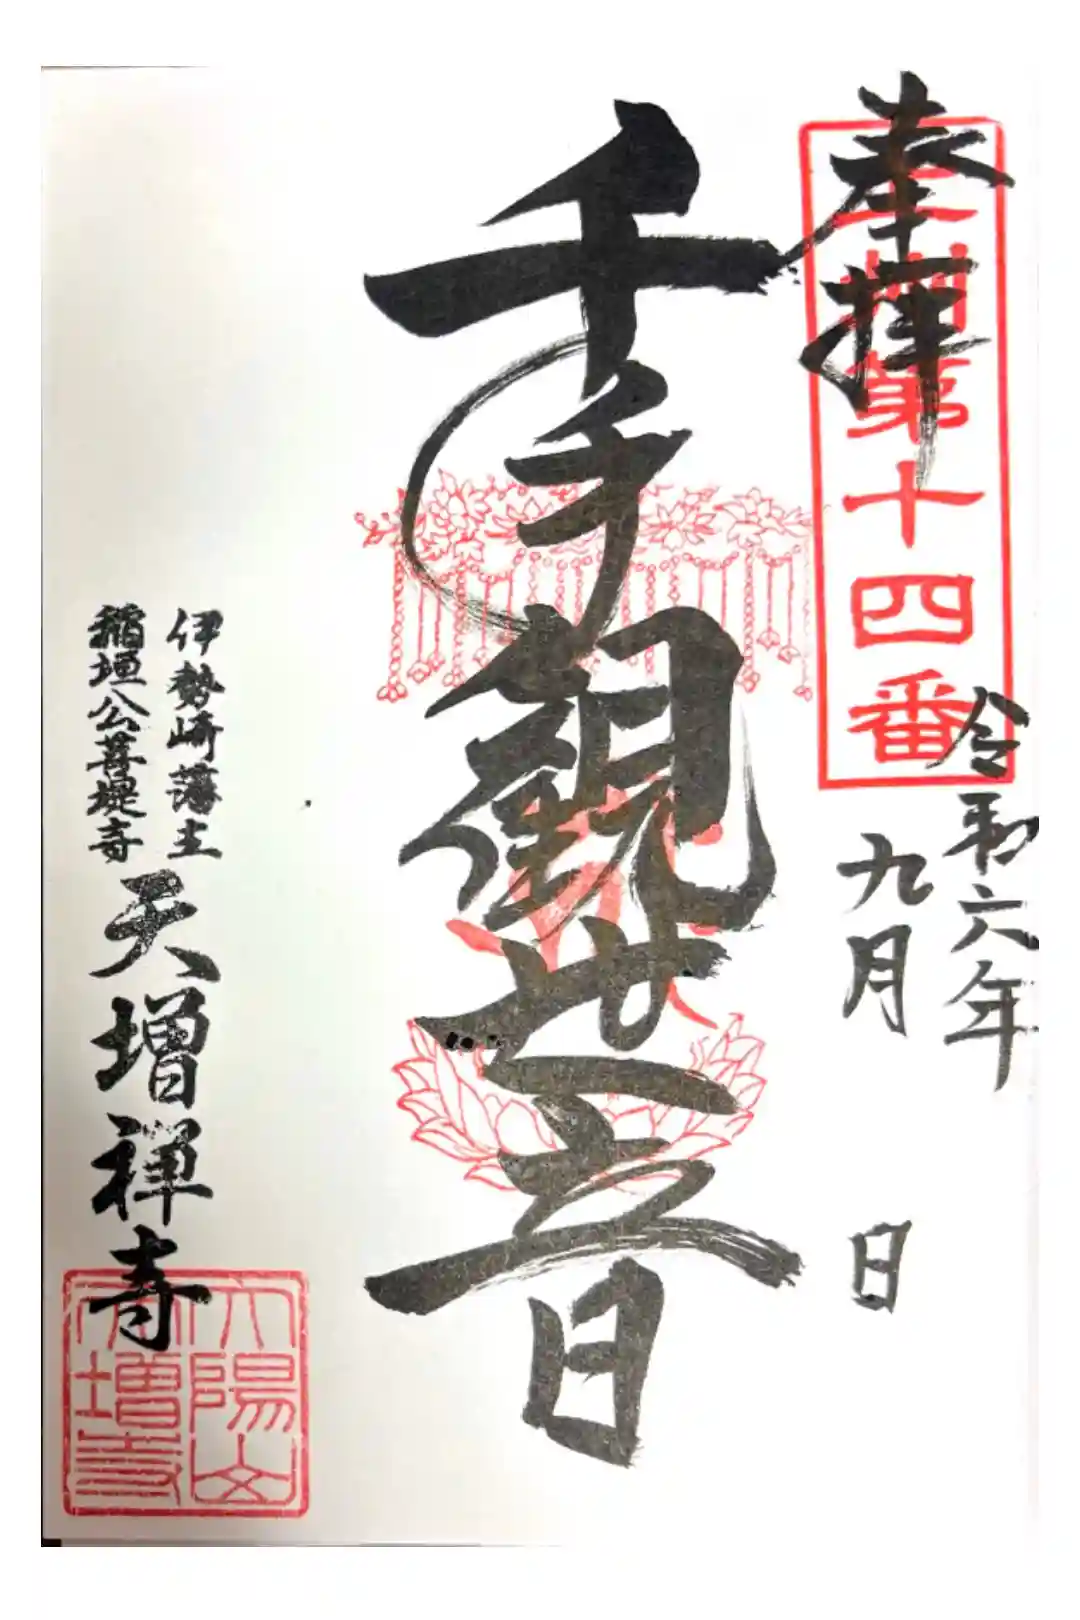 奉拝
上州第十四番
令和六年
九月
日
千手観世音
伊勢崎藩主
稲垣公菩提寺
天増禅寺
六陽山
天増寺